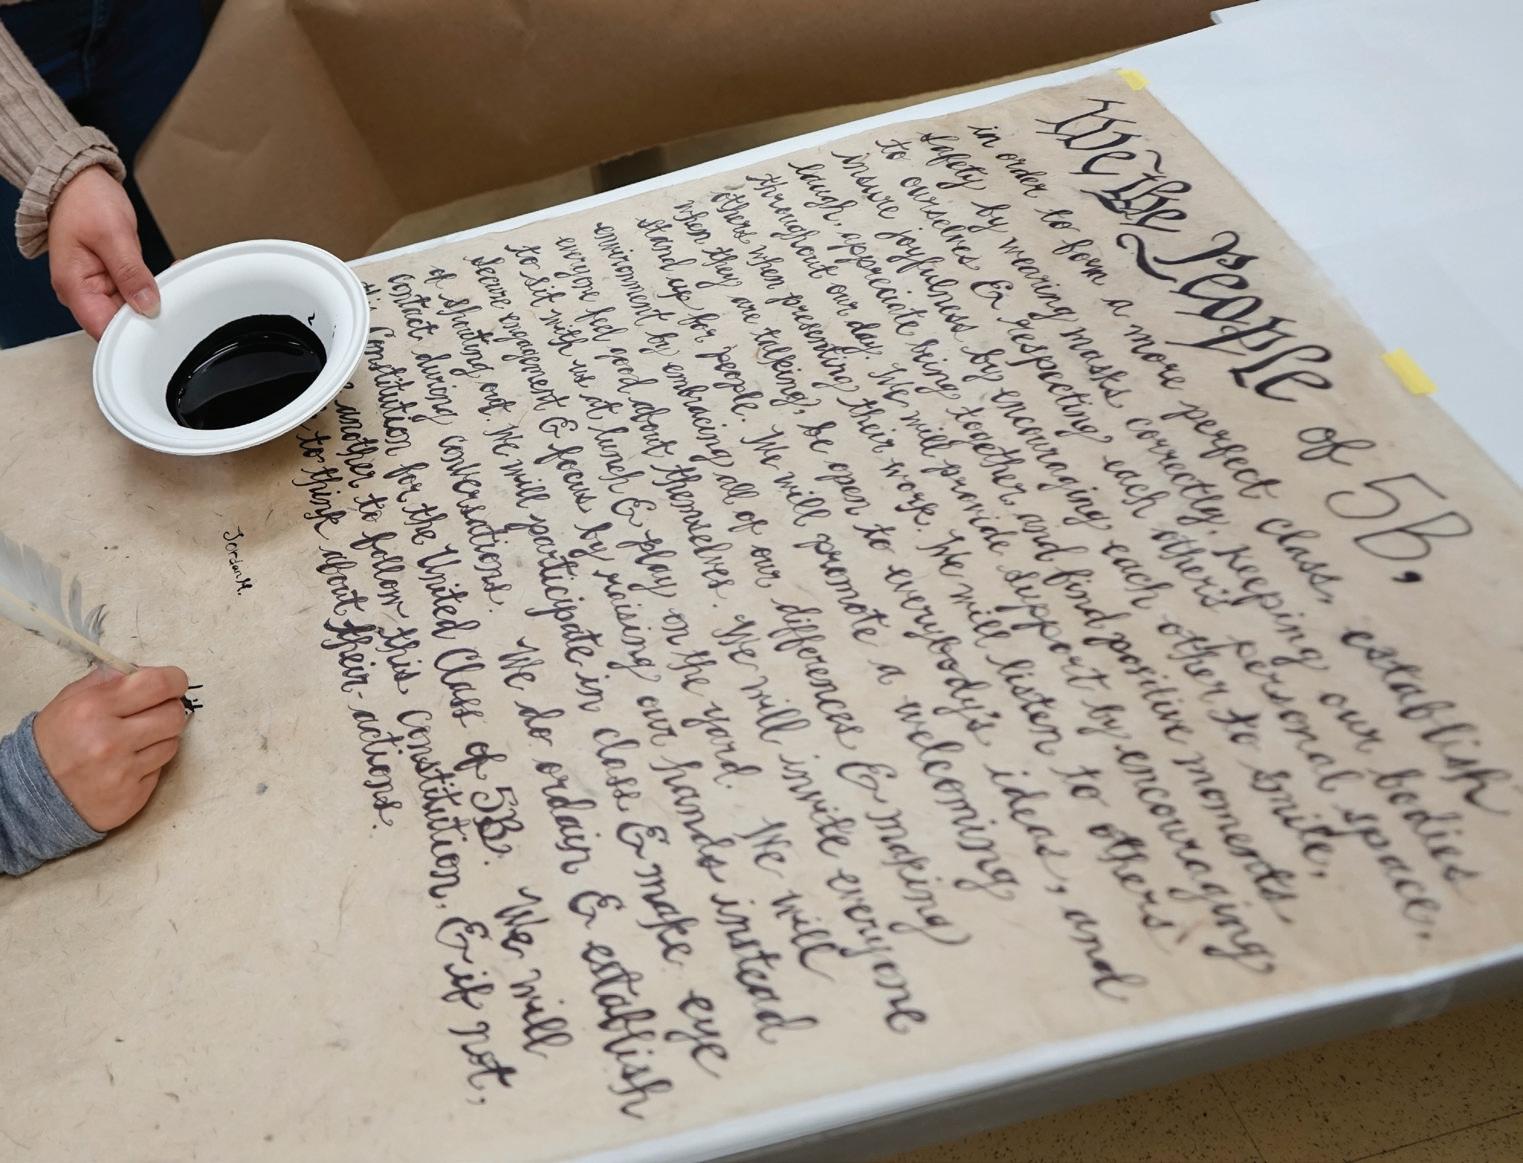 We the People of 5B,
in order to form a more perfect class, establish
safety by wearing masks correctly, keeping our bodies
to ourselves & respecting each other's personal space,
insure joyfulness by encouraging each other to smile,
laugh, appreciate being together and find positive moments
throughout our day. We will provide support by encouraging
others when presenting their work. We will listen to others
when they are talking, be open to everybody's ideas, and
stand up for people. We will promote a welcoming
environment by embracing all of our differences & making
everyone feel good about themselves. We will invite everyone
to sit with us at lunch & play on the yard. We will
secure engagement & focus by raising our hands instead
of shouting out. We will participate in class & make eye
contact during conversations. We do ordain & establish
this Constitution for the United Class of 5B. We will
another to follow this Constitution, & if not,
to think about their actions.
Jordan M.